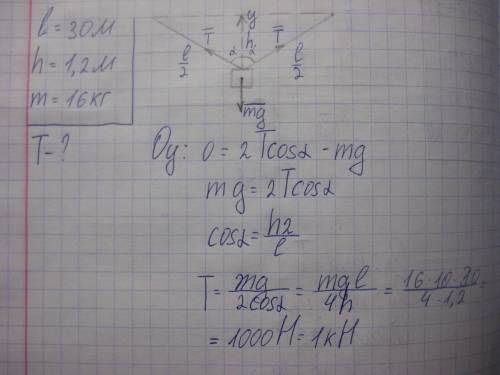 l = 30м
h = 1,2м
m = 16кг
T - ?
y
T̅ h T̅
α α
l/2 l/2
m̅g̅
Oy: 0 = 2Tcosα - mg
mg = 2Tcosα
cosα = h2/l
T = mg/2cosα = mgl/4h = 16·10·30/4·1,2 =
= 1000Н = 1кН